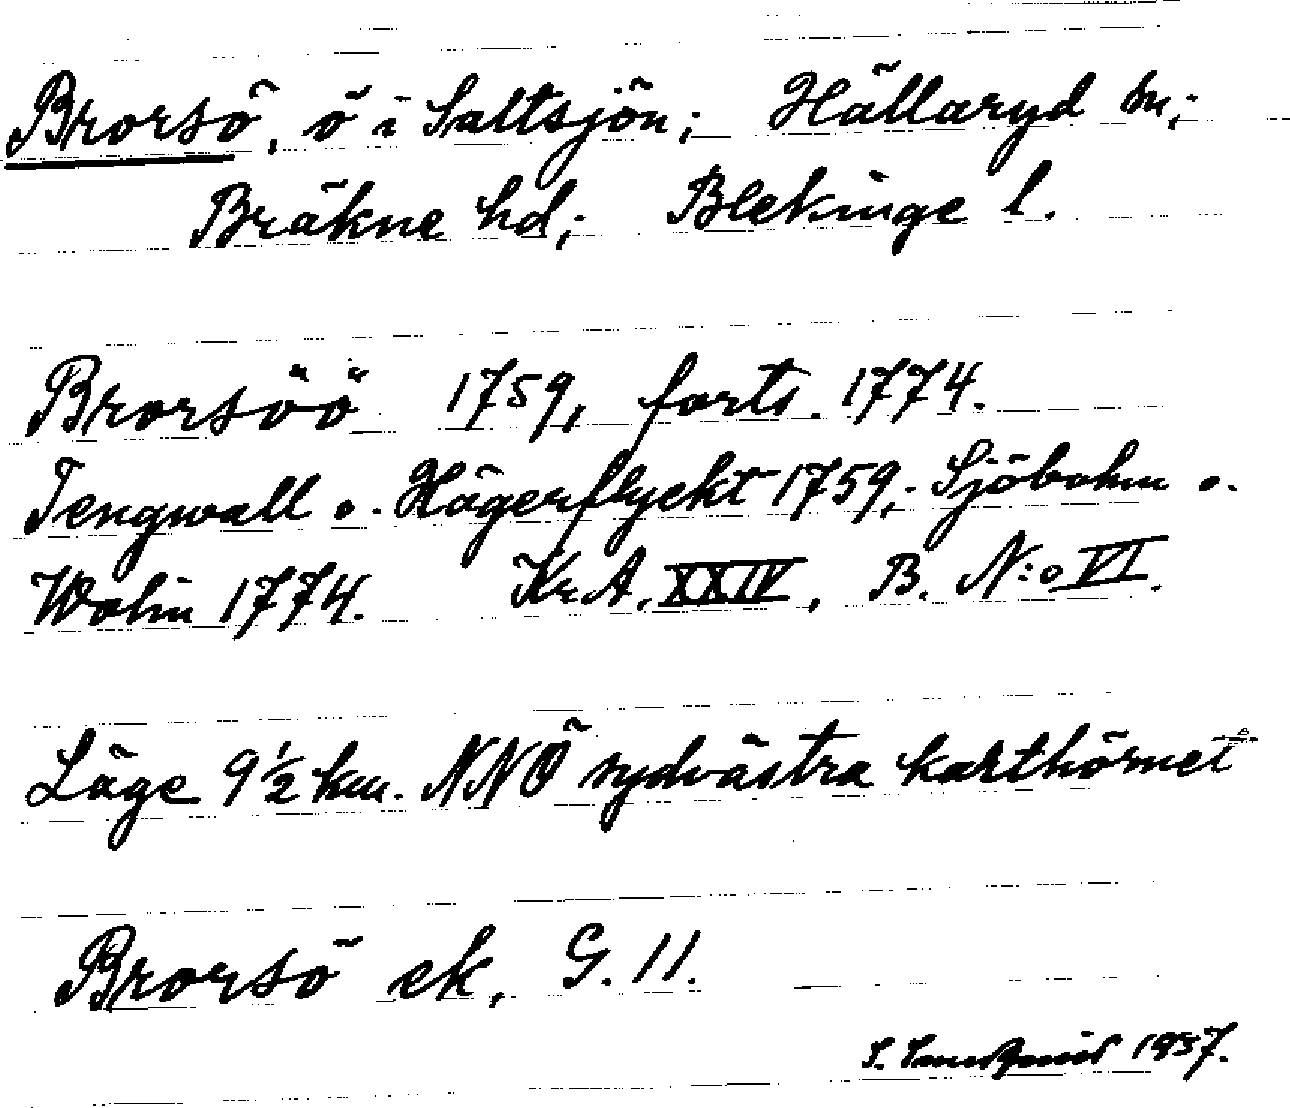 Brorsö, ö i Saltsjön; Hällaryd sn;
Bräkne hd; Blekinge l.
Brorsöö 1759, forts. 1774.
Tengwall o. Hägerflyckt 1759; Sjöbohm o.
Wohin 1774. Kr.A. XXIV, B. N:o VI.
Läge 9½ km. NNÖ sydvästra karthörnet
Brorsö ek, G. 11.
S. 1937.